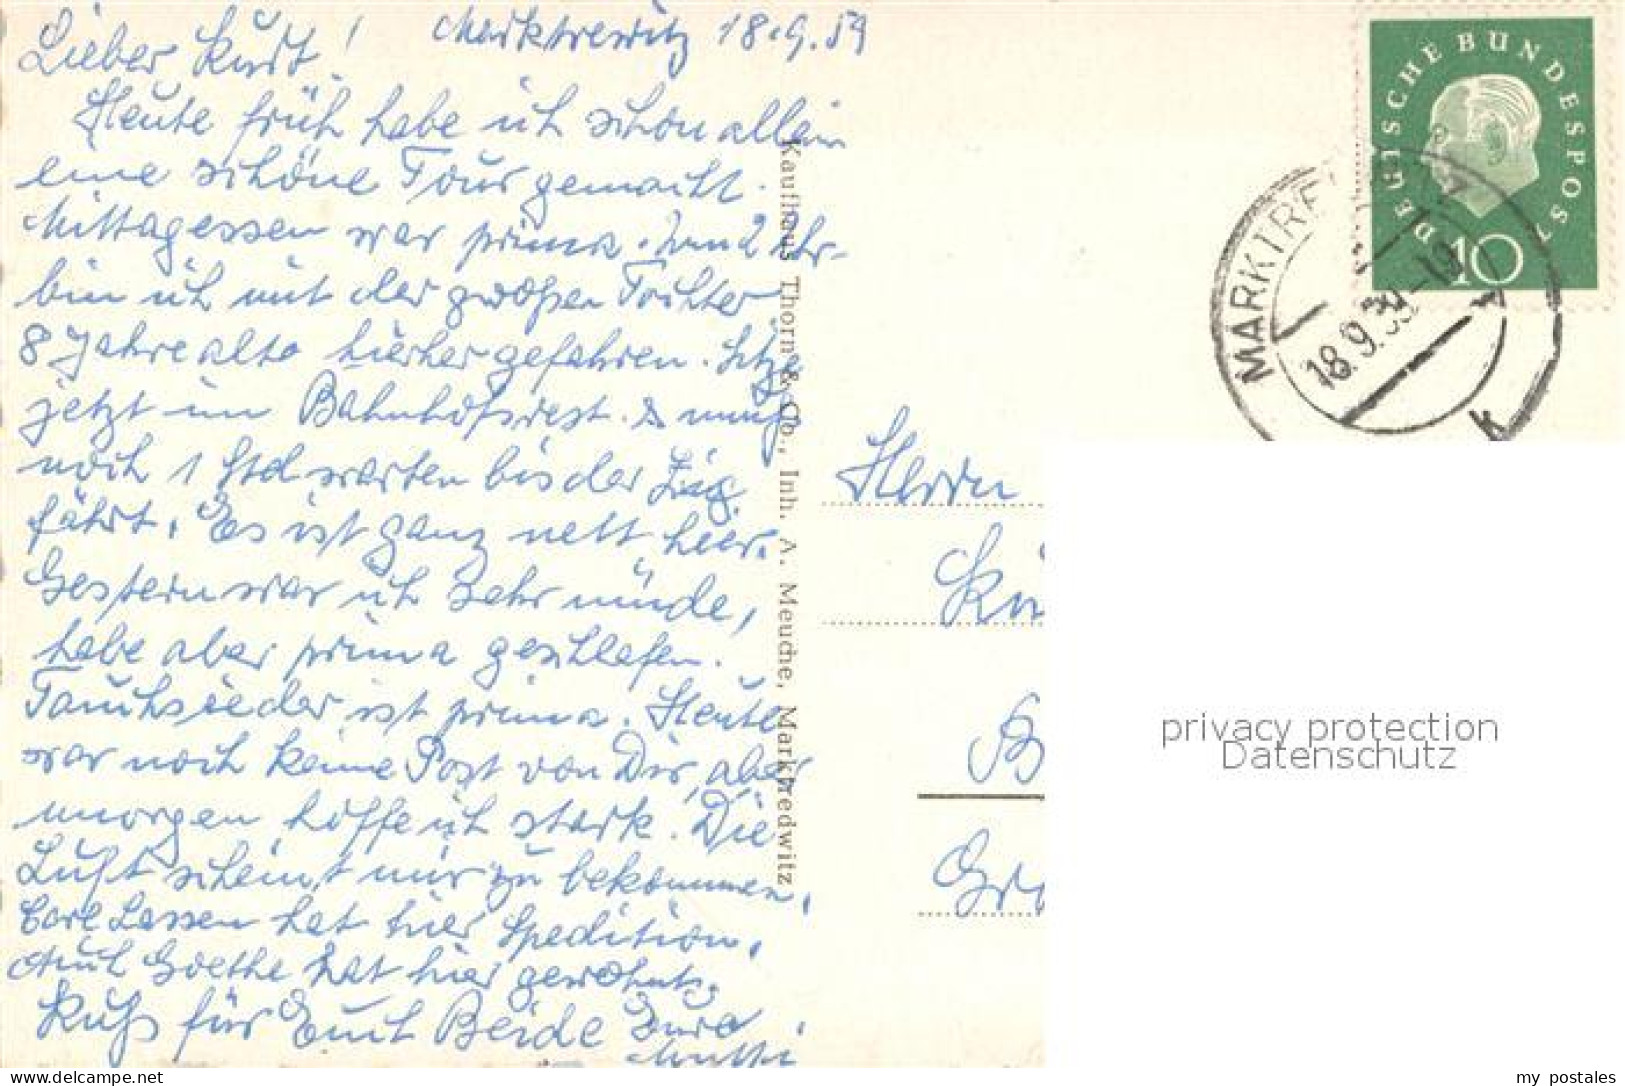 Marktrewitz 18.9.59
Lieber Kurt!
Heute früh habe ich schon allein
eine schöne Tour gemacht.
Mittagessen war prima. Um 2 Uhr
bin ich mit der großen Tochter
8 Jahre alt hierher gefahren. Sitze
jetzt im Bahnhofsrest. & muß
noch 1 Std warten bis der Zug
fährt. Es ist ganz nett hier.
Gestern war ich sehr müde,
habe aber prima geschlafen.
Tauchsieder ist prima. Heute
war noch keine Post von Dir, aber
morgen hoffe ich stark. Die
Luft scheint mir zu bekommen.
Carl Lassen hat hier Spedition.
Auch Goethe hat hier gewohnt.
Kuß für Euch Beide Eure
Mutti
Kaufhaus Thorn & Co., Inh. A. Meuche, Marktredwitz
DEUTSCHE BUNDESPOST
10
MARKTRE
18.9.59-19
Herrn
Kü
B
Gro
privacy protection
Datenschutz
my postales